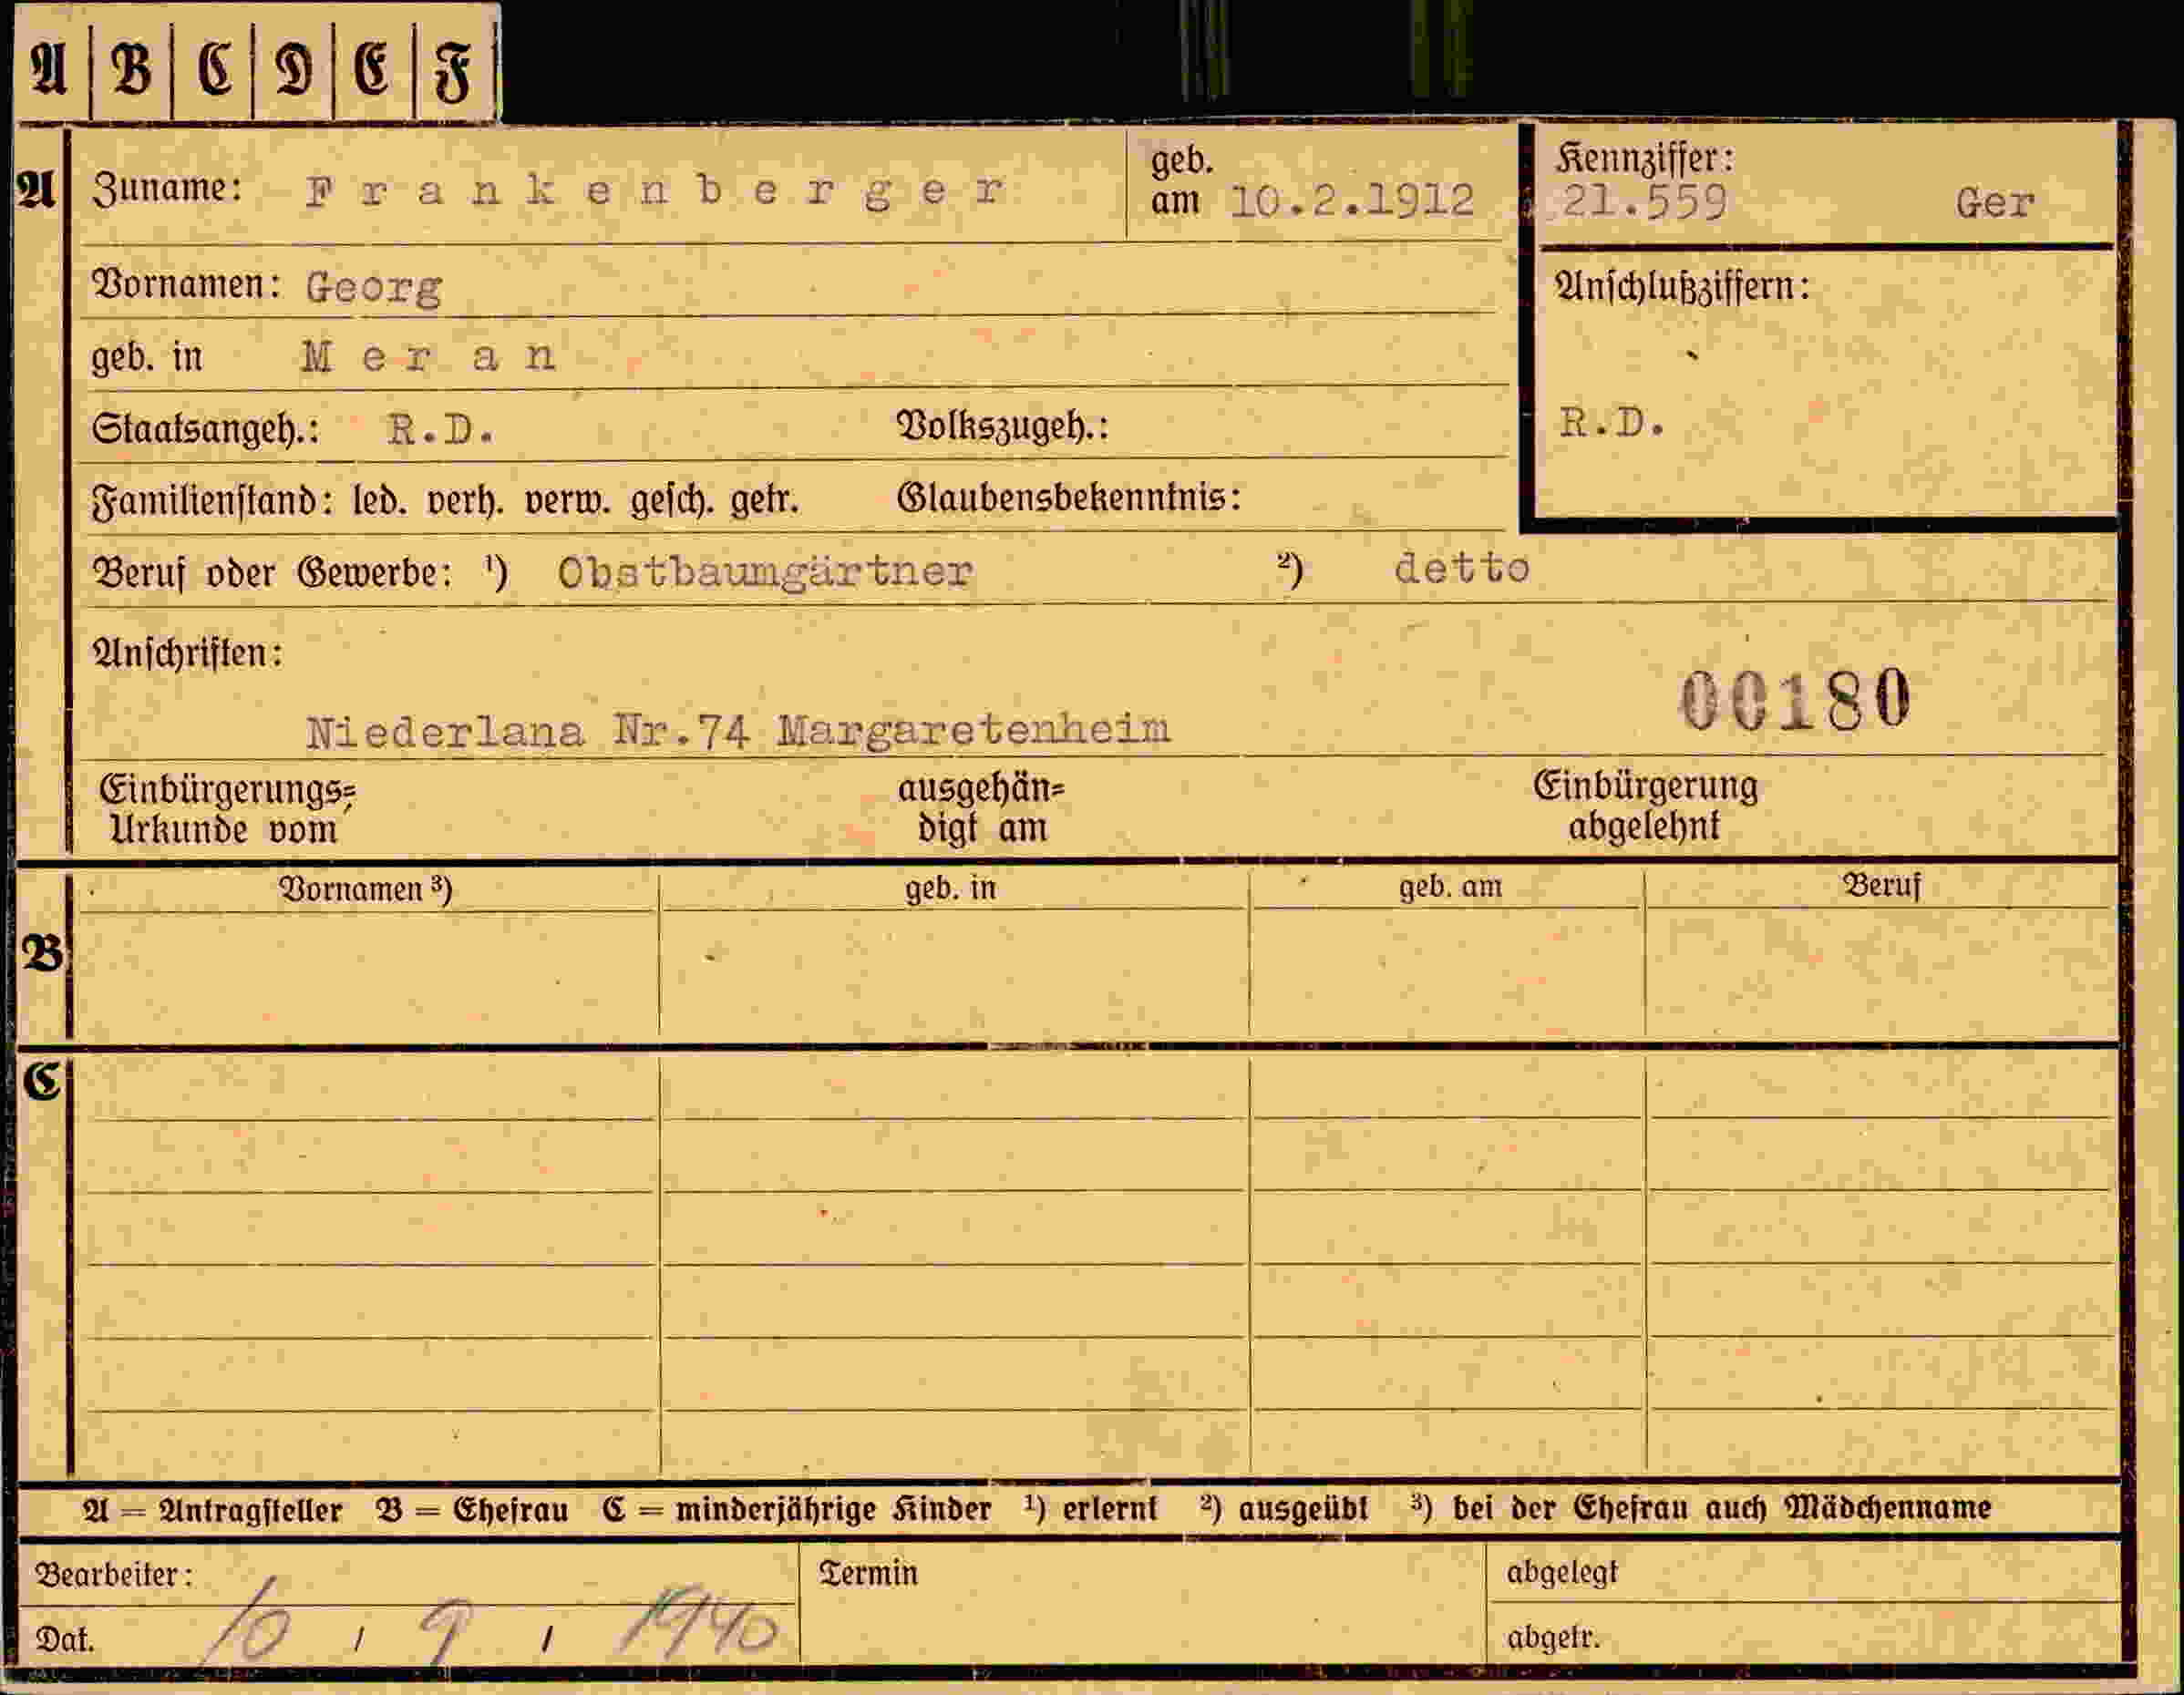 A B C D E F
A Zuname: Frankenberger geb. am 10.2.1912 Kennziffer: 21.559 Ger
Vornamen: Georg Anschlußziffern:
geb. in Meran
Staatsangeh.: R.D. Volkszugeh.: R.D.
Familienstand: led. verh. verw. gesch. getr. Glaubensbekenntnis:
Beruf oder Gewerbe: ¹) Obstbaumgärtner ²) detto
Anschriften:
00180
Niederlana Nr.74 Margaretenheim
Einbürgerungs= ausgehän= Einbürgerung
Urkunde vom digt am abgelehnt
Vornamen ³) geb. in geb. am Beruf
B
C
A = Antragsteller B = Ehefrau C = minderjährige Kinder ¹) erlernt ²) ausgeübt ³) bei der Ehefrau auch Mädchenname
Bearbeiter: Termin abgelegt
Dat. 10 / 9 / 1940 abgetr.